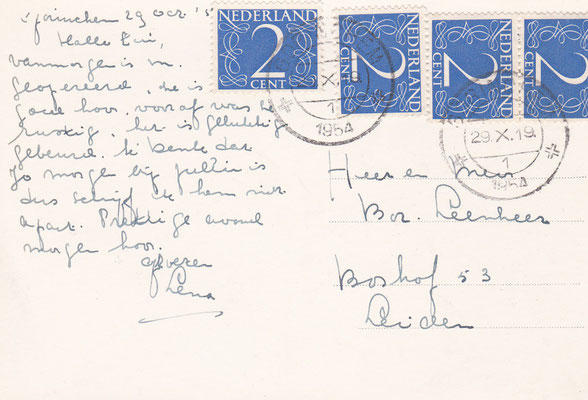 Gorinchem 29 oct '5
Hallo Lui,
vanmorgen is m.
geopereerd, die is
goed hoor, vooraf was ze
rustig, het is gelukkig
gebeurd. Ik denk dat
Jo morgen bij jullie is
dus schrijf ik hem niet
apart. Prettige avond
morgen hoor.
Lena
NEDERLAND
2
CENT
NEDERLAND
2
CENT
NEDERLAND
2
CENT
NEDERLAND
2
CENT
X.19
1
1954
29.X.19
1
1954
Heer en Mevr
Leenheer
Boshof 53
Leiden